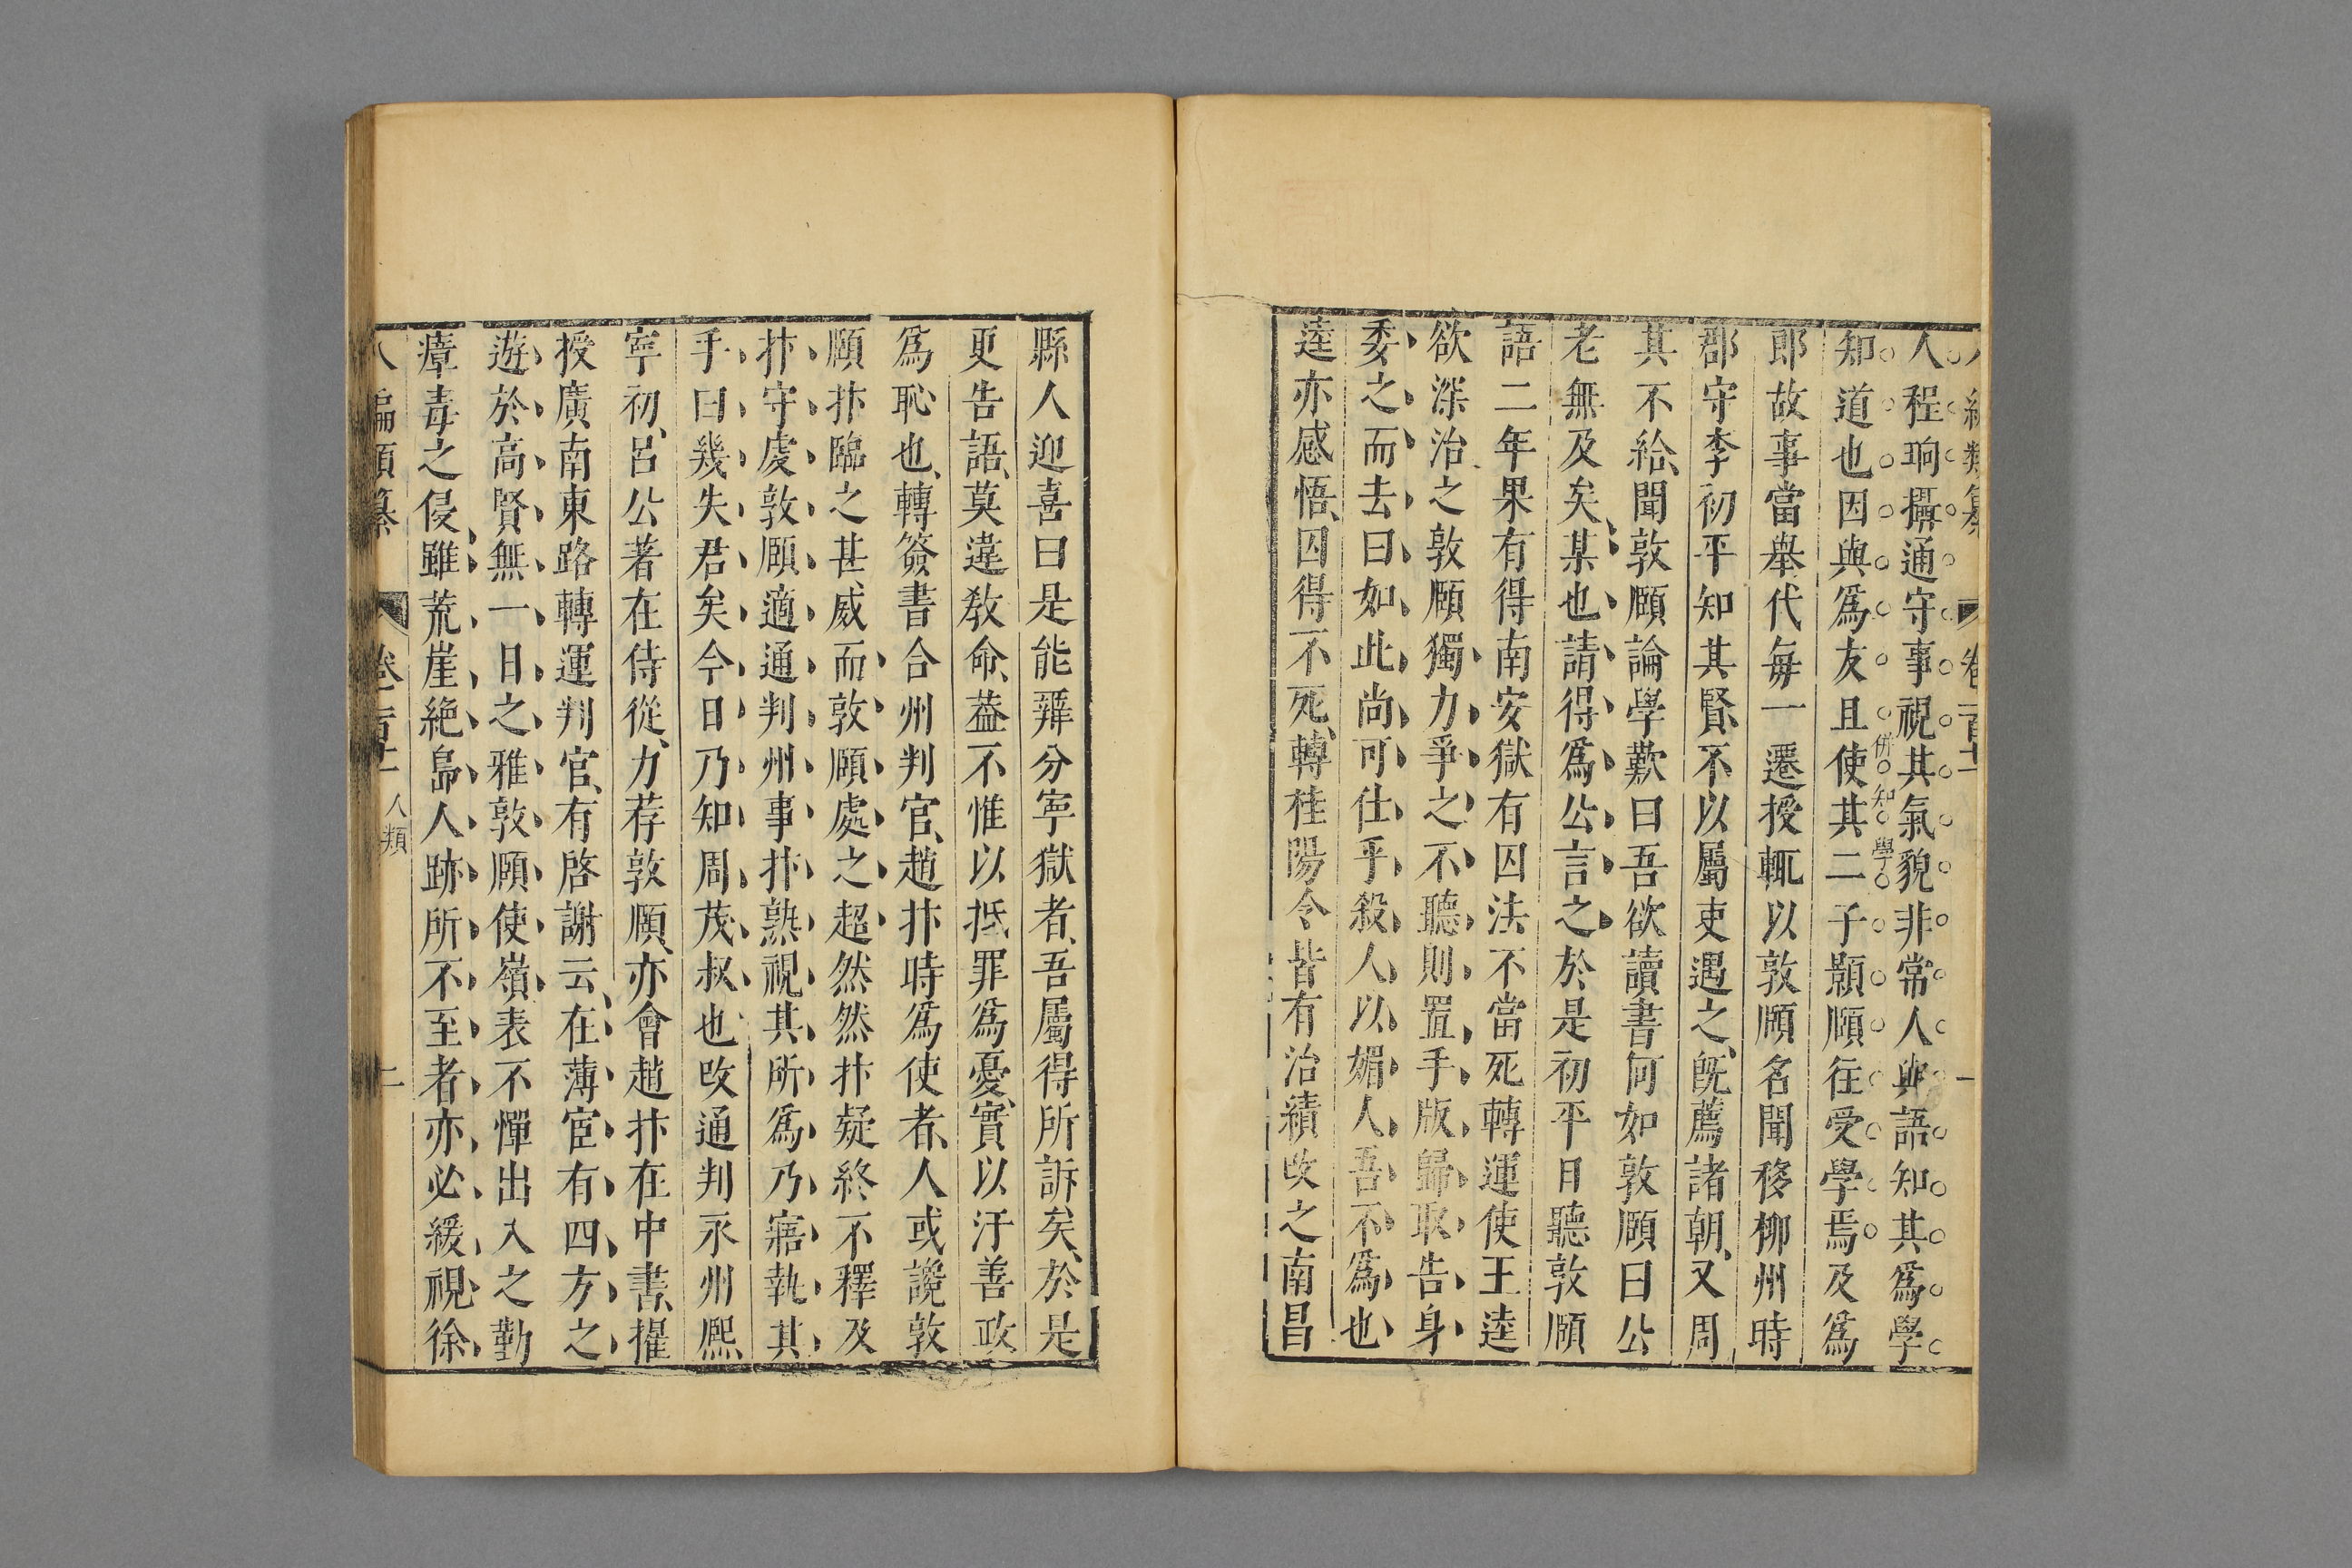 編類纂 卷一百十一 一
人程珦攝通守事視其氣貌非常人與語知其爲學
知道也因與爲友且使其二子顥頤往受學焉及爲
併知學
郎故事當舉代每一遷授輒以敦頤名聞移郴州時
郡守李初平知其賢不以屬吏遇之旣薦諸朝又周
其不給聞敦頤論學歎曰吾欲讀書何如敦頤曰公
老無及矣某也請得爲公言之於是初平日聽敦頤
語二年果有得南安獄有囚法不當死轉運使王逵
欲深治之敦頤獨力爭之不聽則置手版歸取告身
委之而去曰如此尚可仕乎殺人以媚人吾不爲也
逵亦感悟囚得不死轉桂陽令皆有治績改之南昌
縣人迎喜曰是能辨分寧獄者吾屬得所訴矣於是
更告語莫違教命葢不惟以抵罪爲憂實以汙善政
爲恥也轉簽書合州判官趙抃時爲使者人或讒敦
頤抃臨之甚威而敦頤處之超然然抃疑終不釋及
抃守虔敦頤適通判州事抃熟視其所爲乃寤執其
手曰幾失君矣今日乃知周茂叔也改通判永州熈
寧初呂公著在侍從力荐敦頤亦會趙抃在中書擢
授廣南東路轉運判官有啓謝云在薄宦有四方之
遊於高賢無一日之雅敦頤使嶺表不憚出入之勤
瘴毒之侵雖荒崖絶島人跡所不至者亦必緩視徐
八編類纂 卷一百十一 人類 二